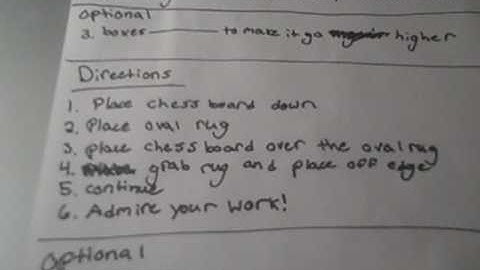 optional
3. boxes ——— to make it go higher
Directions
1. Place chess board down
2. Place oval rug
3. place chess board over the oval rug
4. grab rug and place off edge
5. continue
6. Admire your work!
optional